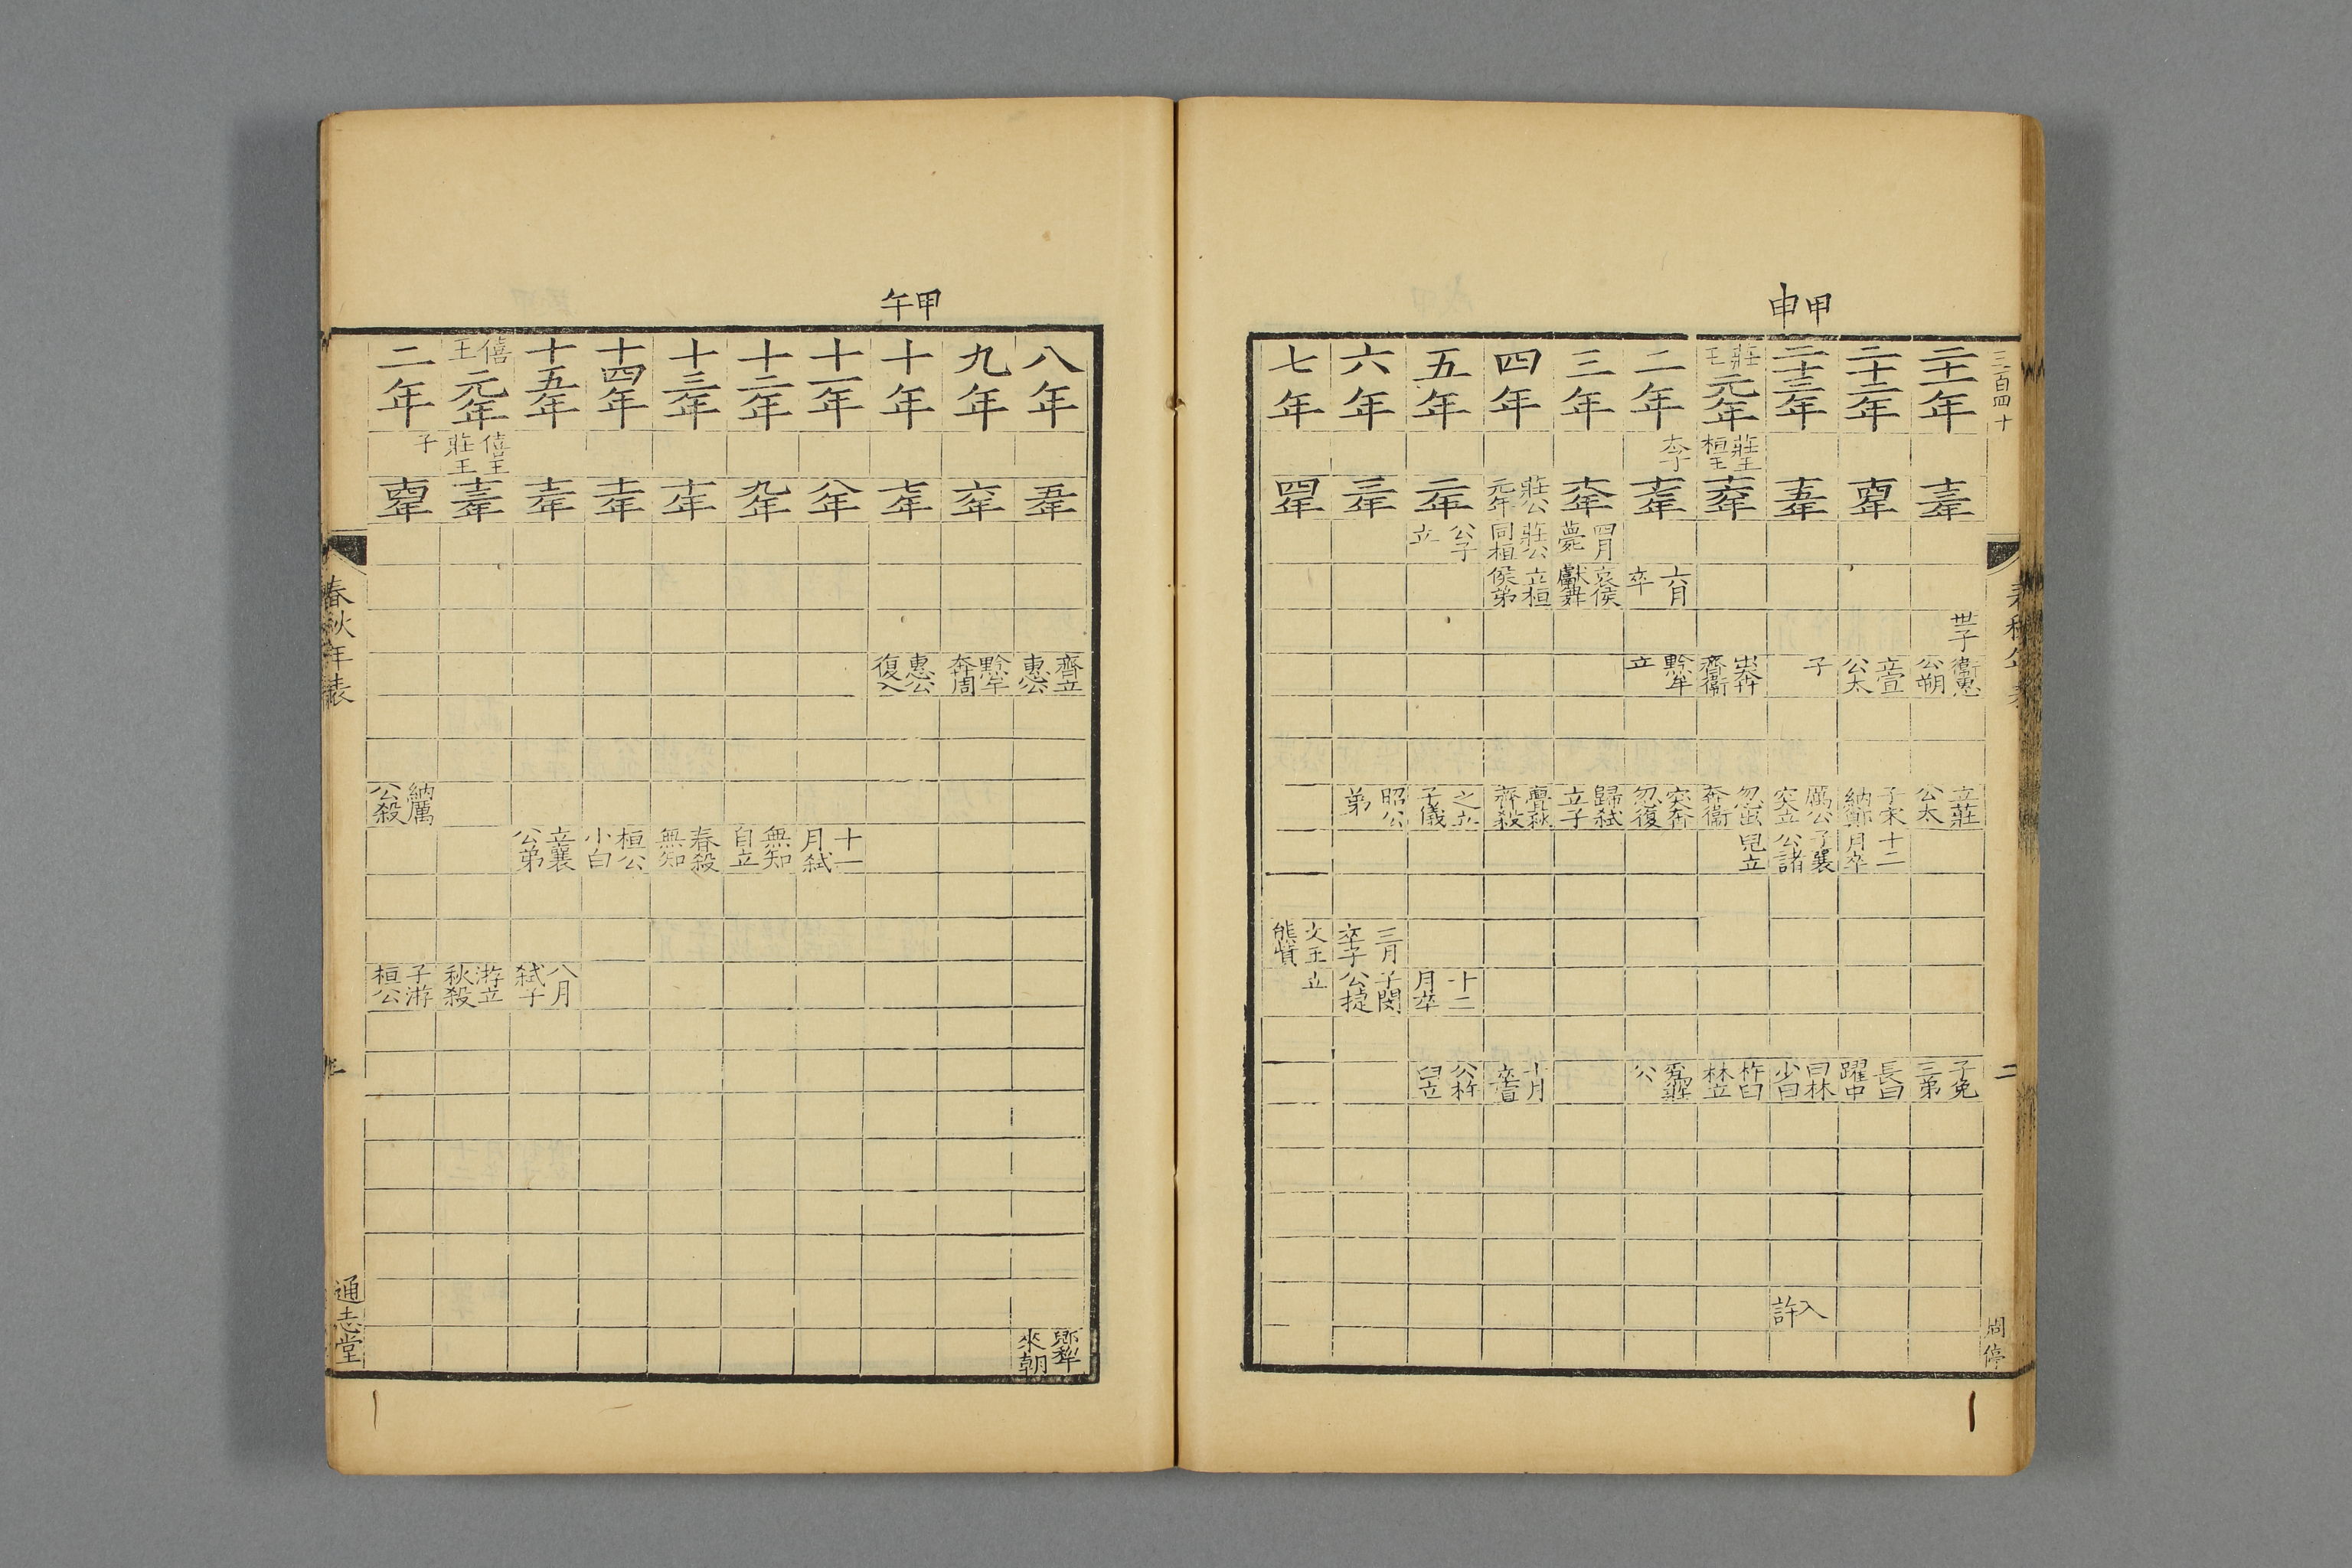 甲申
三百四十
二
二十一年 十三年 世子 衛惠公朔 立莊公太 子免三弟
二十二年 十四年 立宣公太 子宋納鄭 十二月卒 長曰躍中
二十三年 十五年 子 厲公突立 子襄公諸 曰林少曰 入許
莊王元年 莊王桓王 十六年 出奔齊衛 忽出奔衛 兒立 杵臼林立
二年 太子 十七年 六月卒 黔牟立 突奔忽復 莊公
三年 十八年 四月薨 哀侯獻舞 歸弒立子
四年 莊公元年 莊公同桓 立桓侯弟 亹秋齊殺 十月
五年 二年 公子立 之立子儀 十二月卒 公杵臼立
六年 三年 昭公弟 三月卒子 子閔公捷
七年 四年 文王熊貲 立
甲午
八年 五年 齊立惠公 郳犂來朝
九年 六年 黔牟奔周
十年 七年 惠公復入
十一年 八年 十一月弒
十二年 九年 無知自立
十三年 十年 春殺無知
十四年 十一年 桓公小白
十五年 十二年 立襄公弟 八月弒子
僖王元年 僖王莊王 十三年 游立秋殺
二年 子 十四年 納厲公殺 子游桓公
春秋年表
通志堂